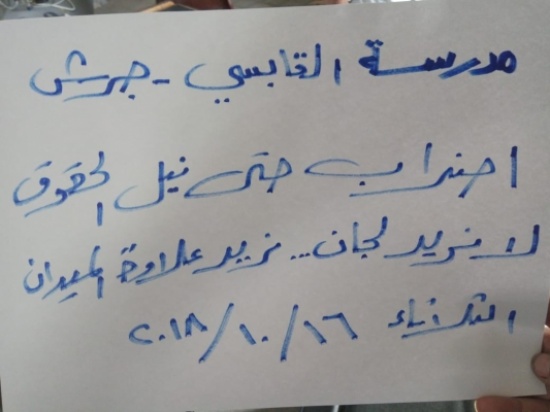 مدرسة القابسي - جرش
اضراب حتى نيل الحقوق
لا نريد لجان .. نريد علاوة الميدان
الثلاثاء ٢٠١٨/١٠/١٦